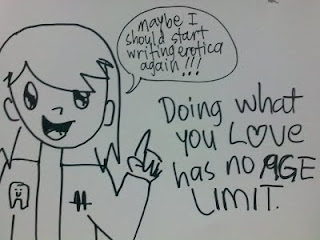 maybe I
should start
writing erotica
again!!!
Doing what
you LOVE
has no AGE
LIMIT.